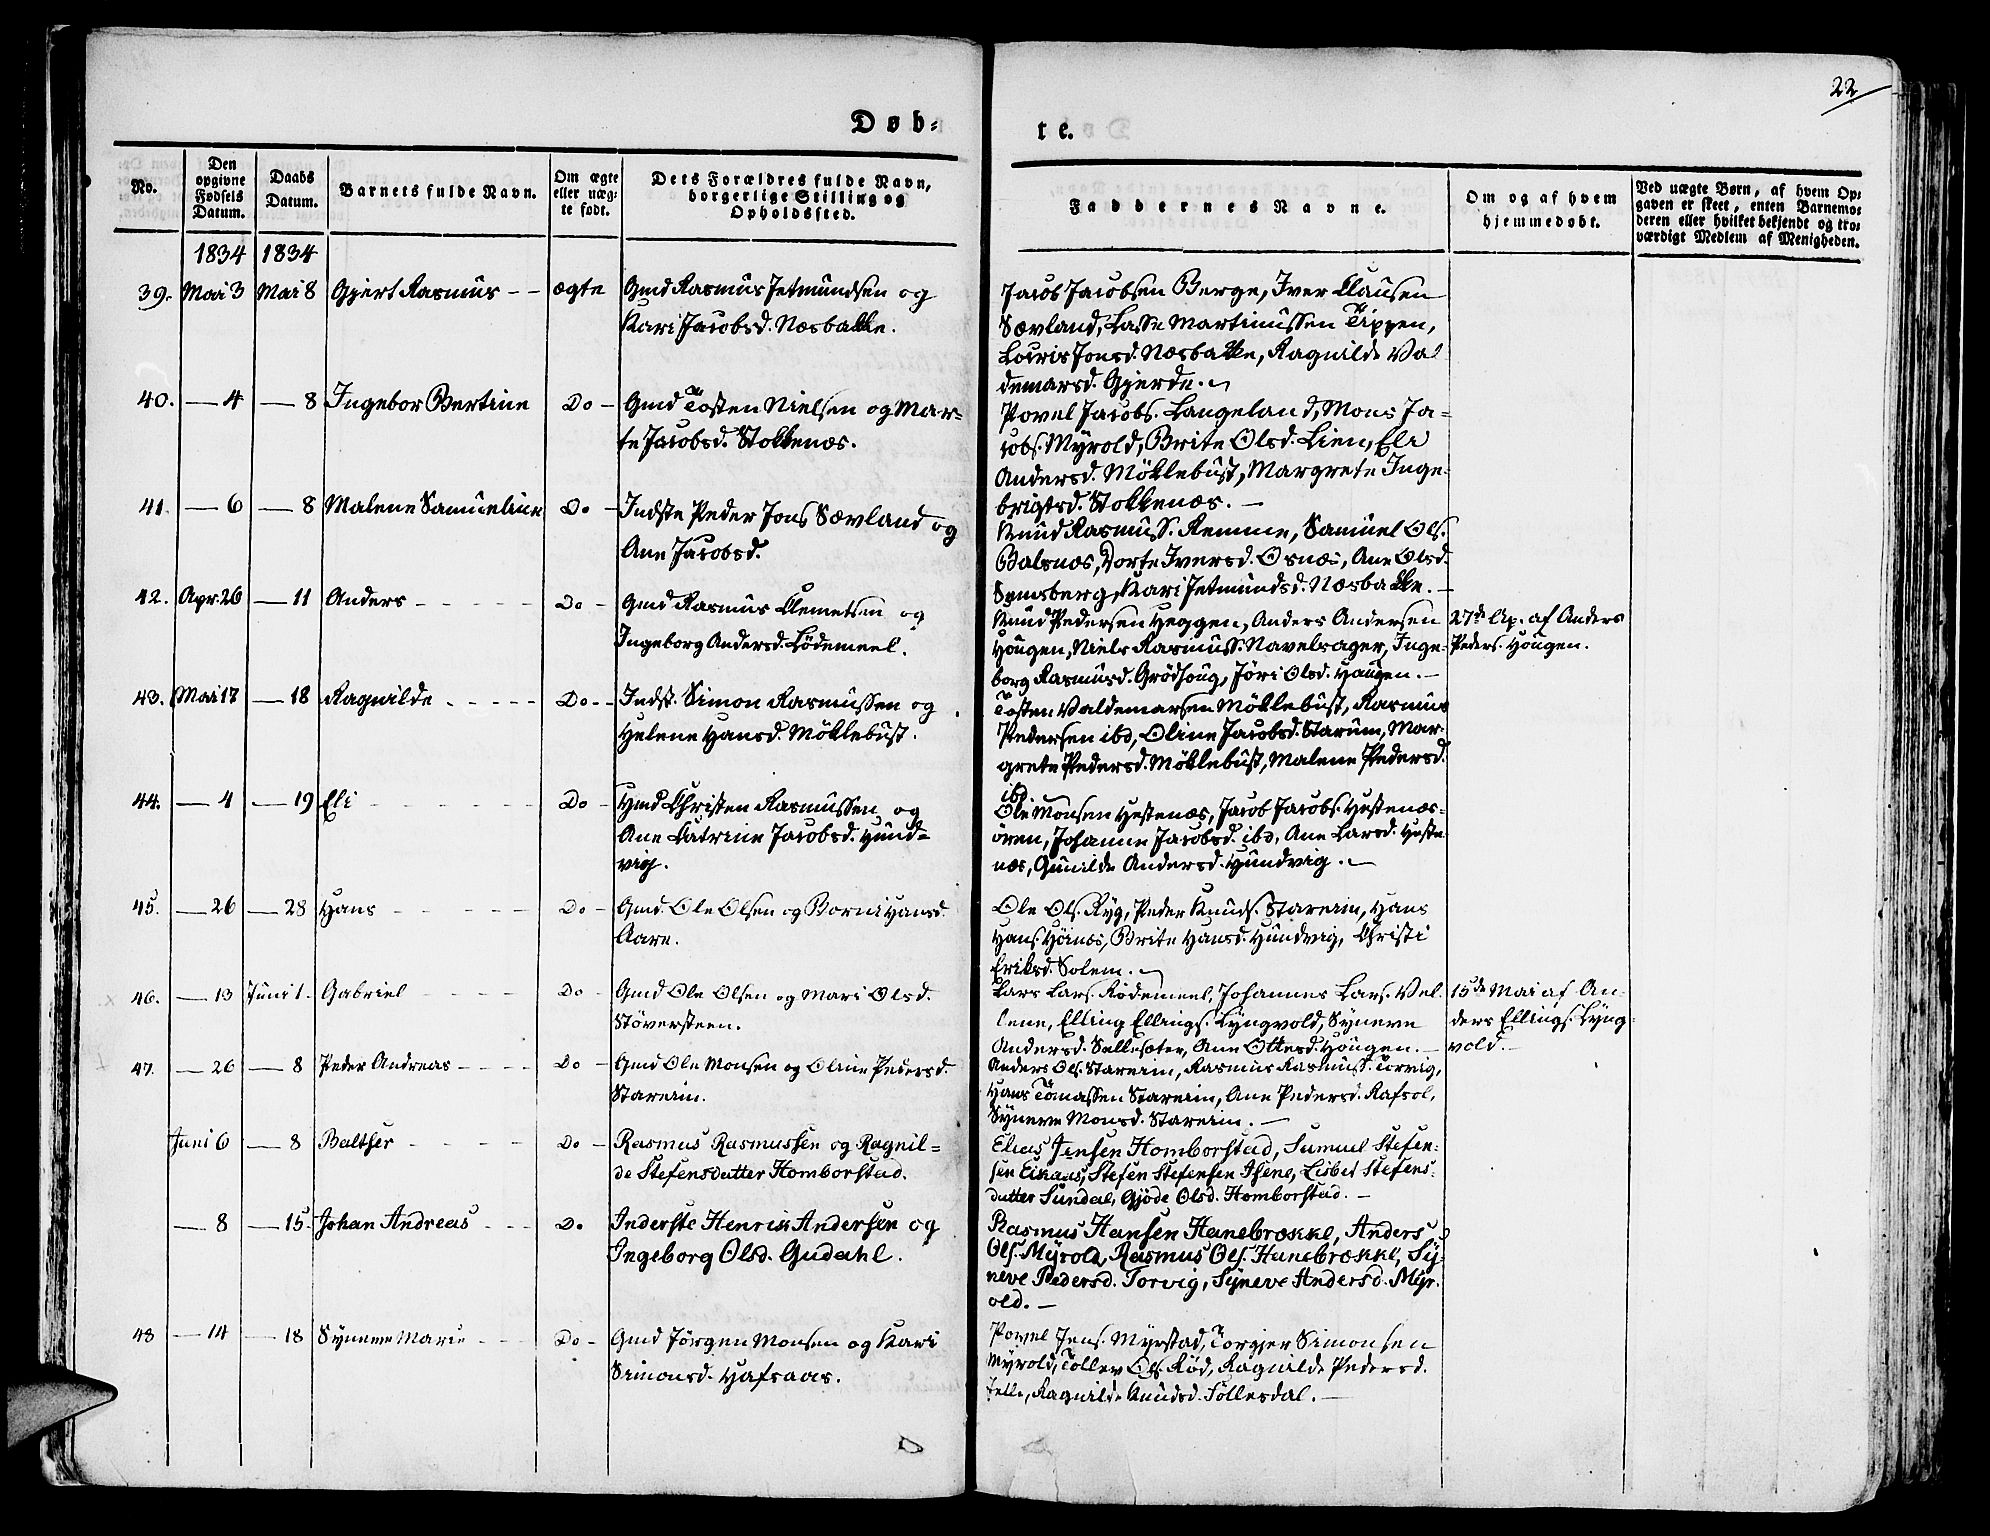 22
Døb-
te.
No.
Den opgivne Fødsels Datum.
Daabs Datum.
Barnets fulde Navn.
Om ægte eller uæg-
te født.
Dets Forældres fulde Navn,
borgerlige Stilling og
Opholdssted.
Faddernes Navne.
Om og af hvem
hjemmedøbt.
Ved uægte Børn, af hvem Op-
gaven er skeet, enten Barnemo-
deren eller hvilket bekjendt og tro-
værdigt Medlem af Menigheden.
1834 1834
39. Mai 3 Mai 8 Gjert Rasmus - - ægte Gmd Rasmus Jetmundsen og
Kari Jacobsd. Næsbakke.
Jacob Jacobsen Berge, Iver Clausen
Sævland, Lasse Martinussen Tippen,
Lovris Jonsd. Næsbakke, Ragnilde Val
demarsd. Gjerde.
40. — 4 — 8 Ingebor Bertine Do - Gmd Tosten Nielsen og Mar-
te Jacobsd. Stokkenæs.
Povel Jacobs. Langeland, Mons Ja-
cobs. Myrold, Brite Olsd. Lien, Eli
Andersd. Möklebust, Margrete Inge-
brigtsd. Stokkenæs. —
41. — 6 — 8 Malene Samueline Do - Indste Peder Jons Sævland og
Ane Jacobsd.
Knud Rasmuss. Remme, Samuel Ols.
Balsnæs, Dorte Iversd. Osnæs, Ane Olsd.
Kari Jetmundsd. Næsbakke. —
42. Apr. 26 — 11 Anders - - - - Do - Gmd Rasmus Clemetsen og
Ingeborg Andersd. Lödemeel.
Knud Pedersen Heggen, Anders Andersen
Hougen, Niels Rasmuss. Navelsager, Inge-
borg Rasmusd. Grödsoug, Jöri Olsd. Haugen. —
27de Ap. af Anders
Peders. Hougen.
43. Mai 17 — 18 Ragnilde - - - - Do - - Indst. Simon Rasmussen og
Helene Hansd. Möklebust.
Tosten Valdemarsen Möklebust, Rasmus
Pedersen ibd, Oline Jacobsd. Starum, Mar-
grete Pedersd. Möklebust, Malene Pedersd.
ibd.
44. — 4 — 19 Eli - - - - - Do - Hmd Christen Rasmussen og
Ane Catrine Jacobsd. Hund-
vig.
Ole Monsen Hestenæs, Jacob Jacobs. Hestenæs-
ören, Johanne Jacobsd. ibd, Ane Larsd. Heste-
næs, Gunilde Andersd. Hundvig. —
45. — 26 — 28 Hans - - - - - Do - Gmd. Ole Olsen og Borni Hansd.
Aare.
Ole Ols. Ryg, Peder Knuds. Stareim, Hans
Hans. Höinæs, Brite Hansd. Hundvig, Christi
Eriksd. Solem.
46. — 13 Juni 1. Gabriel - - - - Do - Gmd Ole Olsen og Mari Olsd.
Stöversteen.
Lars Lars. Rödemeel, Johannes Lars. Vel-
lene, Elling Ellings. Lyngvold, Syneve
Andersd. Sallesæter, Ane Ottesd. Hougen. —
15de Mai af An-
ders Ellings. Lyng-
vold. —
47. — 26 — 8 Peder Andreas - - - - Do - Gmd Ole Monsen og Oline Pedersd.
Stareim.
Anders Ols. Stareim, Rasmus Rasmuss. Torvig,
Hans Tomassen Stareim, Ane Pedersd. Rafsol,
Syneve Monsd. Stareim. —
Juni 6 — 8 Balther - - - - Do - Rasmus Rasmussen og Ragnil-
de Stefensdatter Homborstad.
Elias Jensen Homborstad, Samuel Stefen-
sen Eikaas, Stefen Stefensen Isene, Lisbet Stefens-
datter Sundal, Gjöde Olsd. Homborstad. —
— 8 — 15. Johan Andreas - - - Do Inderste Henrik Andersen og
Ingeborg Olsd. Gudahl.
Rasmus Hansen Hanebrække, Anders
Ols. Myrold, Rasmus Ols. Hanebrække, Sy-
neve Pedersd. Torvig, Syneve Andersd. Myr-
old. —
48 — 14 — 18 Syneve Marie - - - Do - Gmd Jörgen Monsen og Kari
Simonsd. Hafsaas.
Povel Jens. Myrstad, Torgjer Simonsen
Myrold, Tollev Ols. Röd, Ragnilde Pedersd.
Ragnilde Knudsd.Föllesdal. —